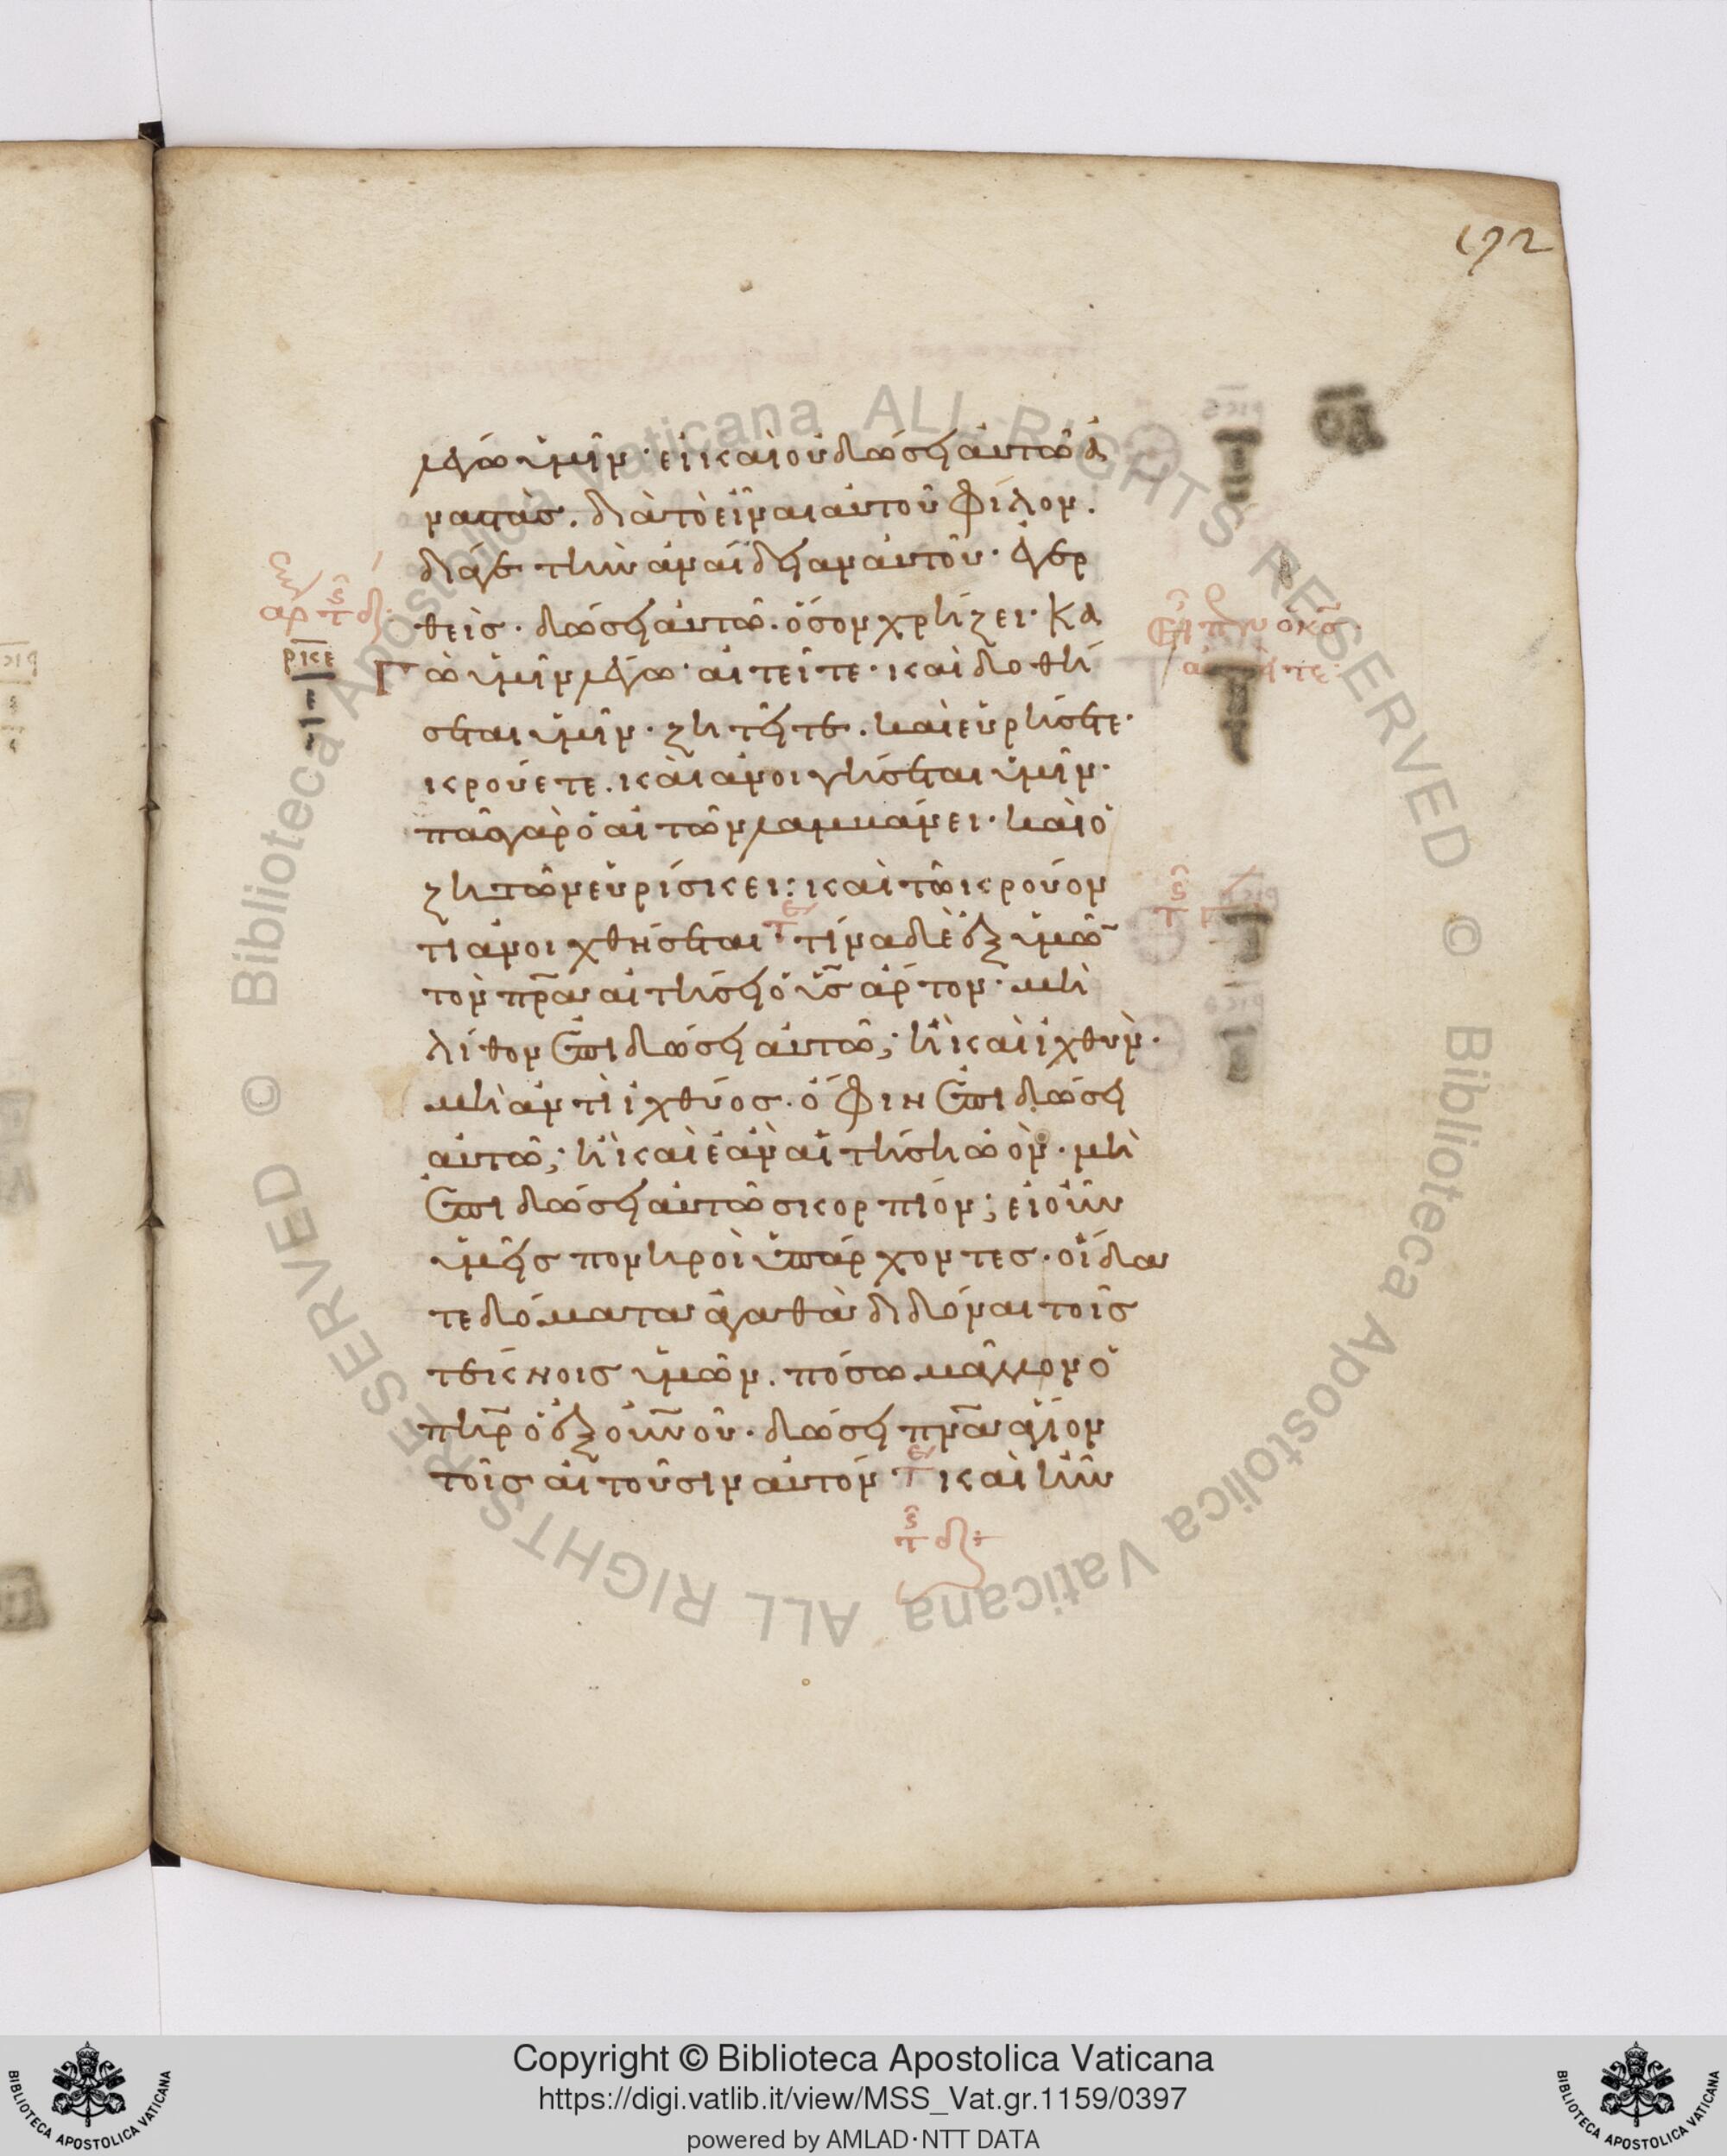 192
λέγω ὑμῖν· εἰ καὶ οὐ δώσει αὐτῶ ἀ
ναστὰς. διὰ τὸ εἶναι αὐτοῦ φίλον.
διάγε τὴν ἀναίδειαν αὐτοῦ· ἐγερ
θεὶς· δώσει αὐτῶ. ὅσον χρήζει· Κα
γὼ ὑμῖν λέγω· αἰτεῖτε· καὶ δοθή
σεται ὑμῖν· ζητεῖτε. καὶ εὑρήσετε·
κρούετε. καὶ ἀνοιγήσεται ὑμῖν·
πᾶς γὰρ ὁ αἰτῶν λαμβάνει· καὶ ὁ
ζητῶν εὑρίσκει· καὶ τῶ κρούον
τι ἀνοιχθήσεται· τίνα δὲ ἐξ ὑμῶ̄
τὸν πρ̅α αἰτήσει ὁ υἱ̅ς ἄρτον· μὴ
λίθον ἐπιδώσει αὐτῶ; ἢ καὶ ἰχθὺν·
μὴ ἀντὶ ἰχθύος· ὄφιν ἐπιδώσει
αὐτῶ; ἢ καὶ ἐὰν αἰτήση ὠὸν· μὴ
ἐπιδώσει αὐτῶ σκορπίον; εἰ οὖν
ὑμεῖς πονηροὶ ὑπάρχοντες· οἴδα
τε δόματα ἀγαθὰ διδόναι τοῖς
τέκνοις ὑμῶν. πόσω μᾶλλον ὁ
πη̅ρ ὁ ἐξ οὐ̅νοῦ· δώσει πν̅α ἅγιον
τοῖς αἰτοῦσιν αὐτόν καὶ ἦν
ρκε
Copyright © Biblioteca Apostolica Vaticana
https://digi.vatlib.it/view/MSS_Vat.gr.1159/0397
powered by AMLAD·NTT DATA
BIBLIOTECA APOSTOLICA VATICANA
BIBLIOTECA APOSTOLICA VATICANA
© Biblioteca Apostolica Vaticana ALL RIGHTS RESERVED © Biblioteca Apostolica Vaticana ALL RIGHTS RESERVED